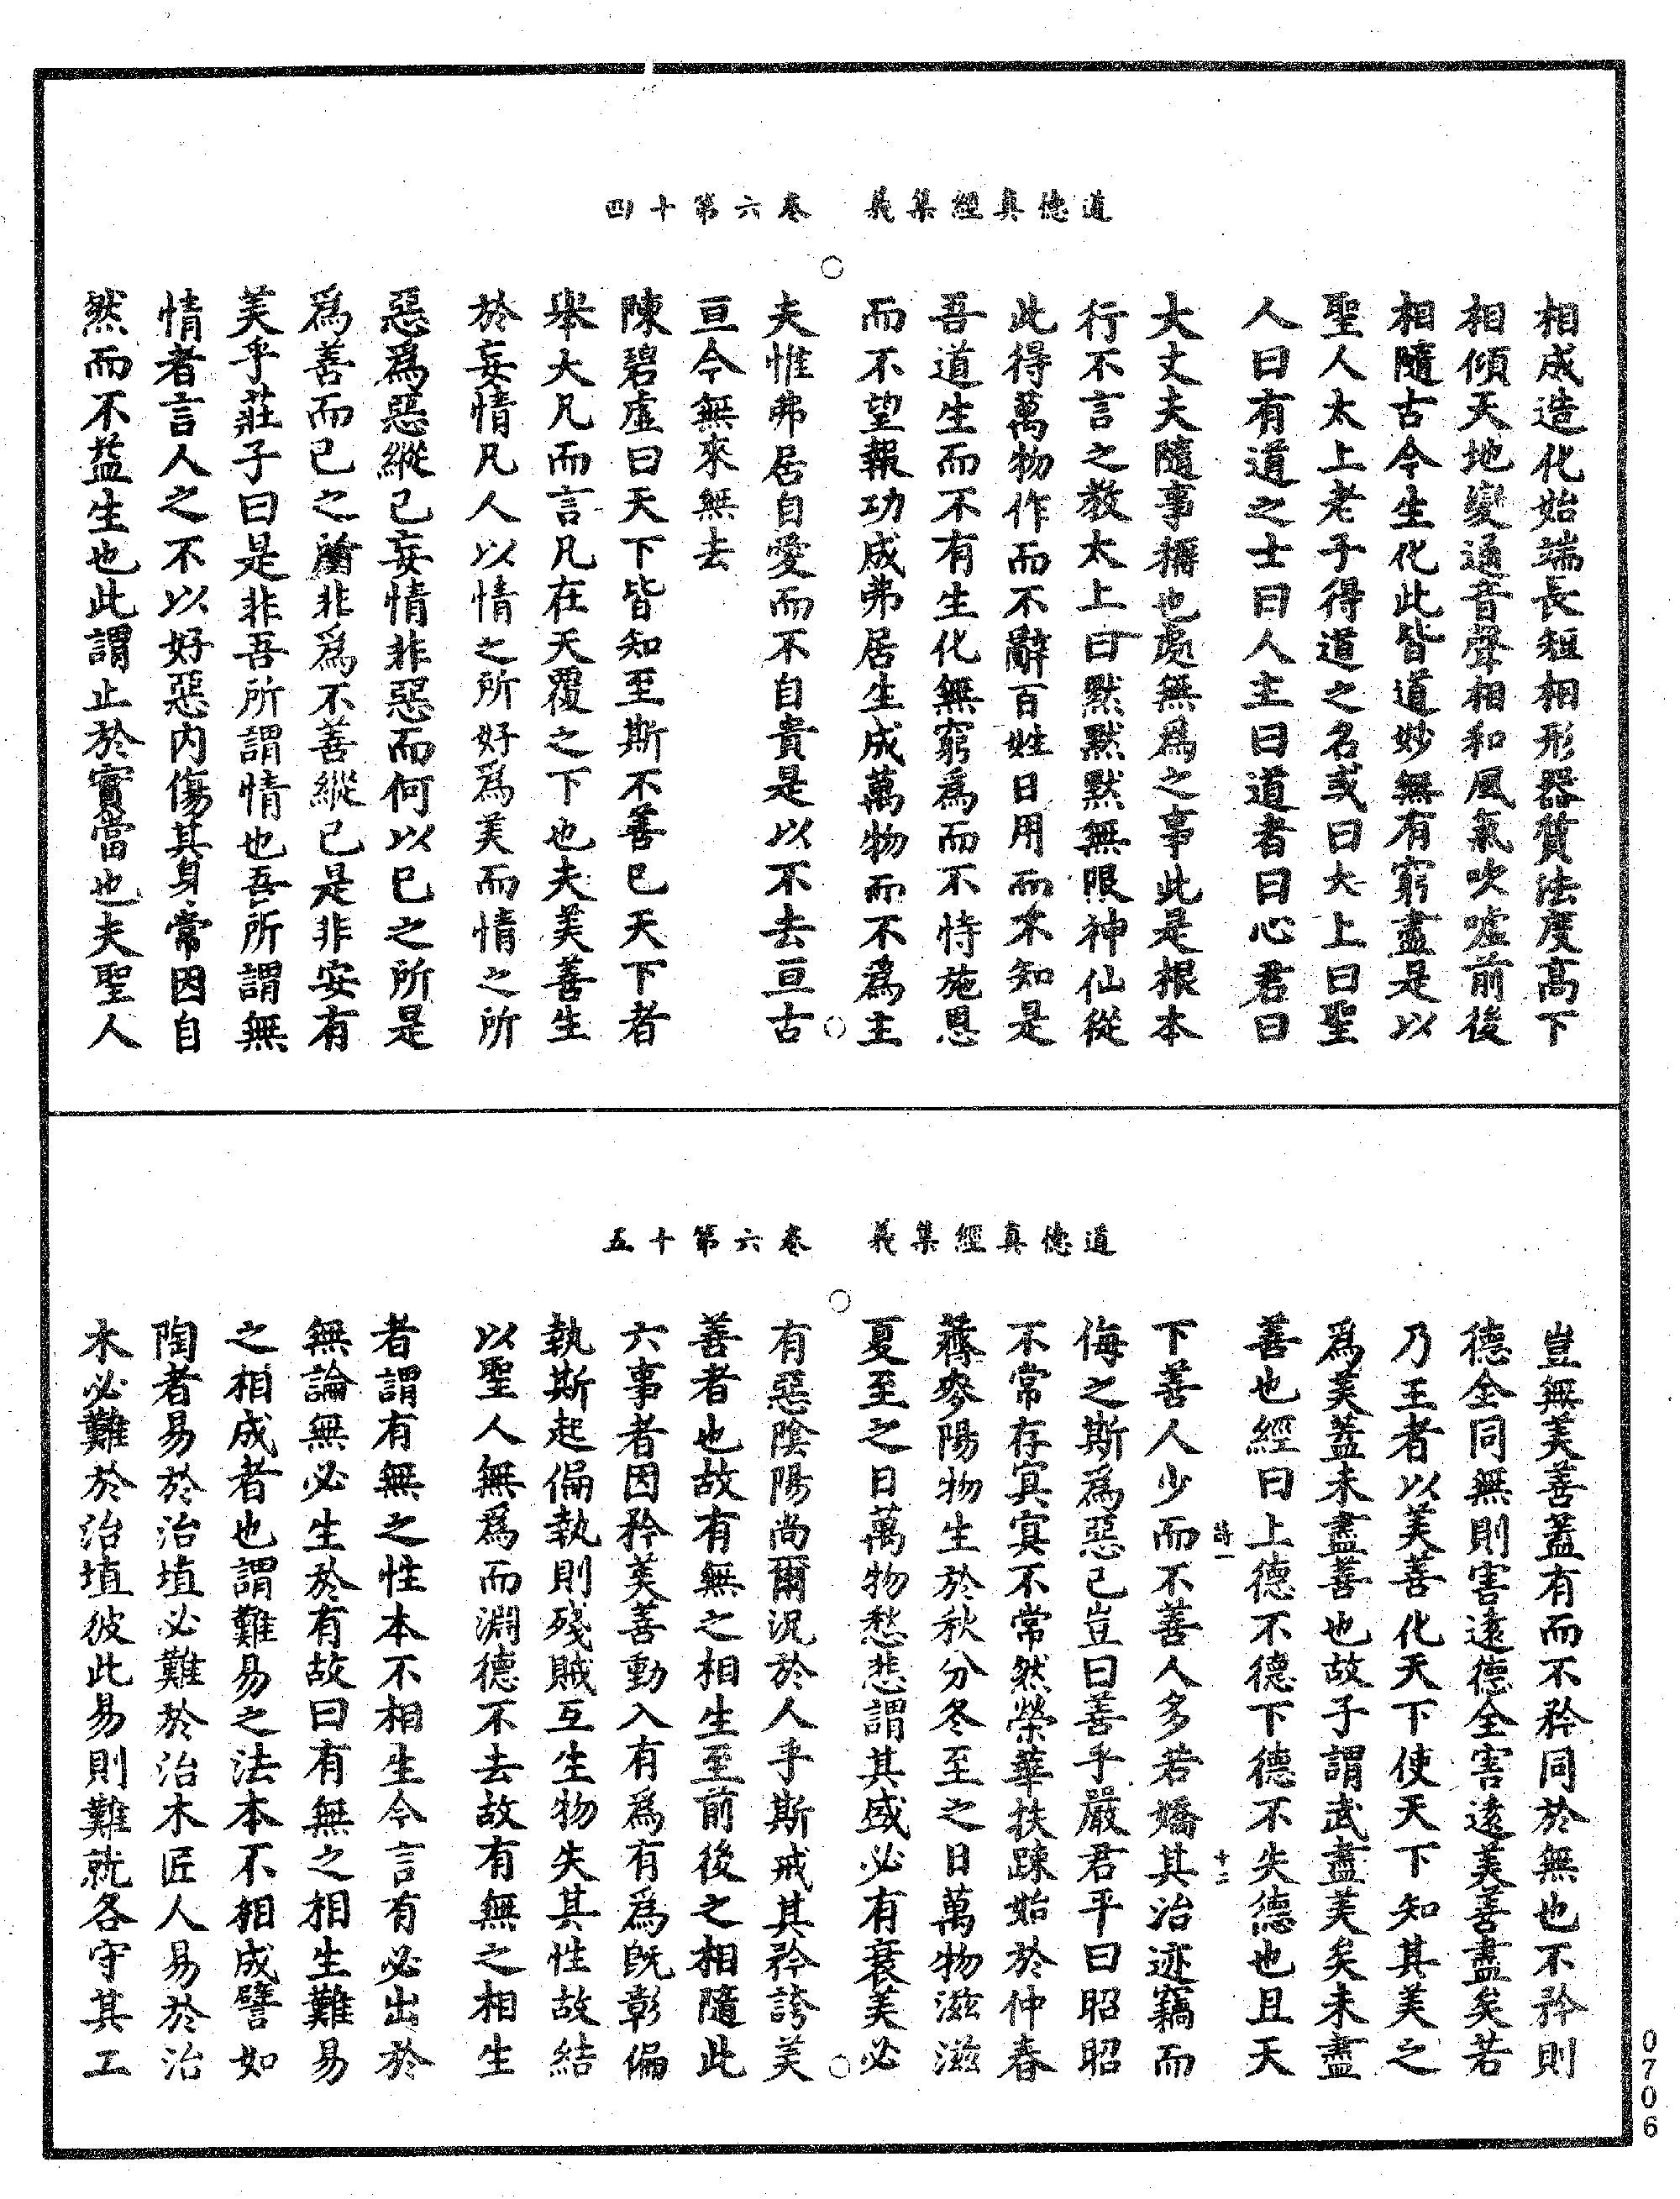 道德真經集義　卷六第十四
相成造化始端長短相形器質法度高下
相傾天地變通音聲相和風氣吹噓前後
相隨古今生化此皆道妙無有窮盡是以
聖人太上老子得道之名或曰大上曰聖
人曰有道之士曰人主曰道者曰心君曰
大丈夫隨事攝也處無爲之事此是根本
行不言之教太上曰默默默無限神仙從
此得萬物作而不辭百姓日用而不知是
吾道生而不有生化無窮爲而不恃施恩
而不望報功成弗居生成萬物而不爲主
夫惟弗居自愛而不自貴是以不去亘古
亘今無來無去
陳碧虛曰天下皆知至斯不善已天下者
舉大凡而言凡在天覆之下也夫美善生
於妄情凡人以情之所好爲美而情之所
惡爲惡縱己妄情非惡而何以己之所是
爲善而己之所非爲不善縱己是非安有
美乎莊子曰是非吾所謂情也吾所謂無
情者言人之不以好惡內傷其身常因自
然而不益生也此謂止於實當也夫聖人
道德真經集義　卷六第十五
豈無美善蓋有而不矜同於無也不矜則
德全同無則害遠德全害遠美善盡矣若
乃王者以美善化天下使天下知其美之
爲美蓋未盡善也故子謂武盡美矣未盡
善也經曰上德不德下德不失德也且天
詩一　十二
下善人少而不善人多若嬌其治迹竊而
侮之斯爲惡已豈曰善乎嚴君平曰昭昭
不常存冥冥不常然榮華扶踈始於仲春
薺麥陽物生於秋分冬至之日萬物滋滋
夏至之日萬物愁悲謂其盛必有衰美必
有惡陰陽尚爾況於人乎斯戒其矜誇美
善者也故有無之相生至前後之相隨此
六事者因矜美善動入有爲有爲旣彰偏
執斯起偏執則殘賊互生物失其性故結
以聖人無爲而淵德不去故有無之相生
者謂有無之性本不相生今言有必出於
無論無必生於有故曰有無之相生難易
之相成者也謂難易之法本不相成譬如
陶者易於治埴必難於治木匠人易於治
木必難於治埴彼此易則難就各守其工
0706